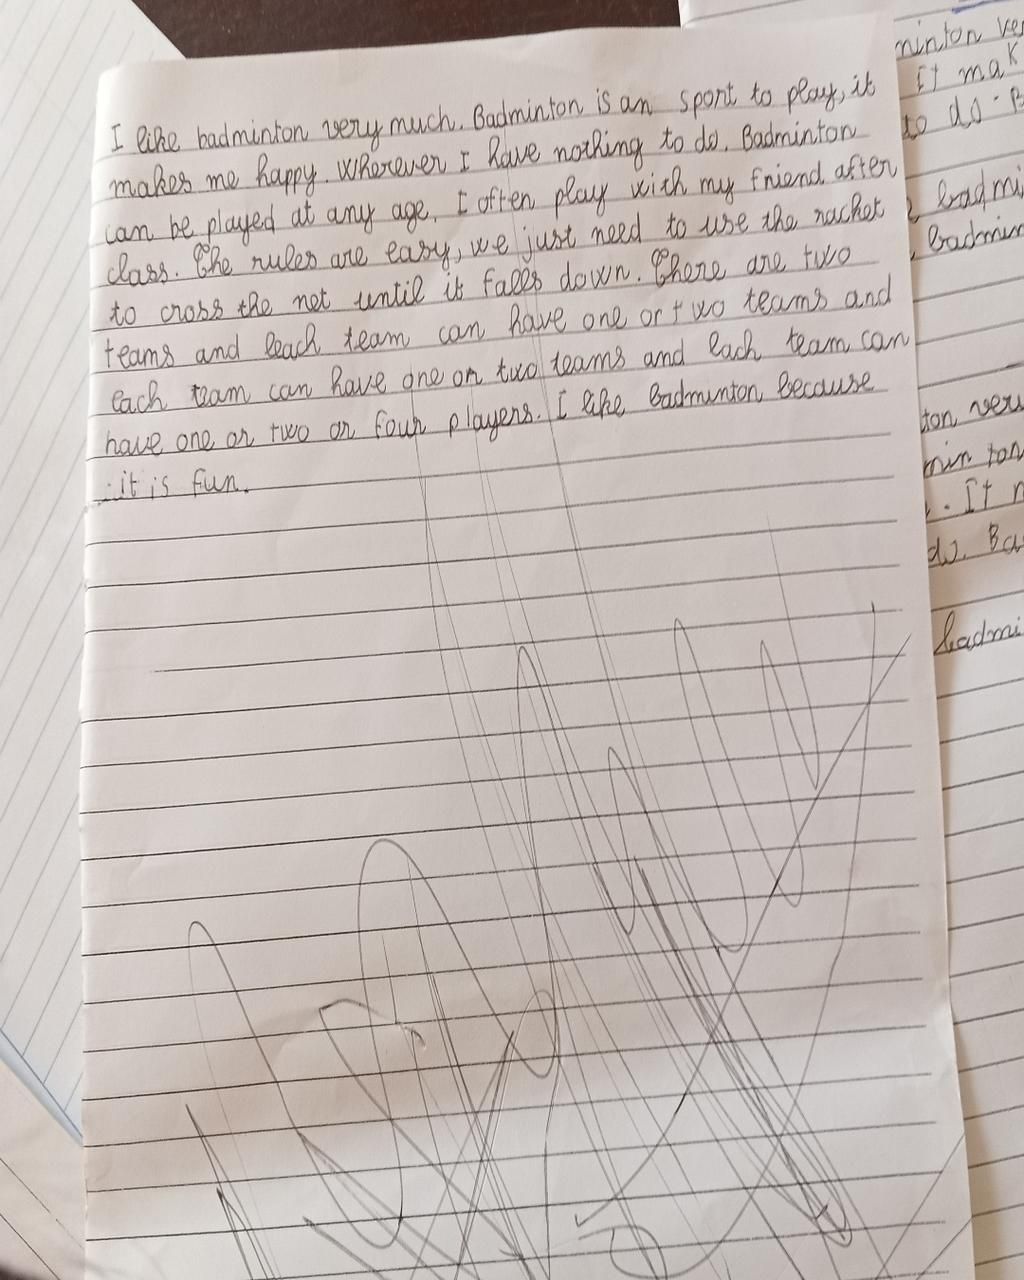 I like badminton very much. Badminton is an sport to play, it
makes me happy. Wherever I have nothing to do. Badminton
can be played at any age. I often play with my friend after
class. The rules are easy, we just need to use the racket
to cross the net until it falls down. There are two
teams and each team can have one or two teams and
each team can have one or two teams and each team can
have one or two or four players. I like Badminton because
it is fun.
minton ver
It mak
to do. B
badmi
badmin
ton veru
min ton
. It m
do. Ba
badmi